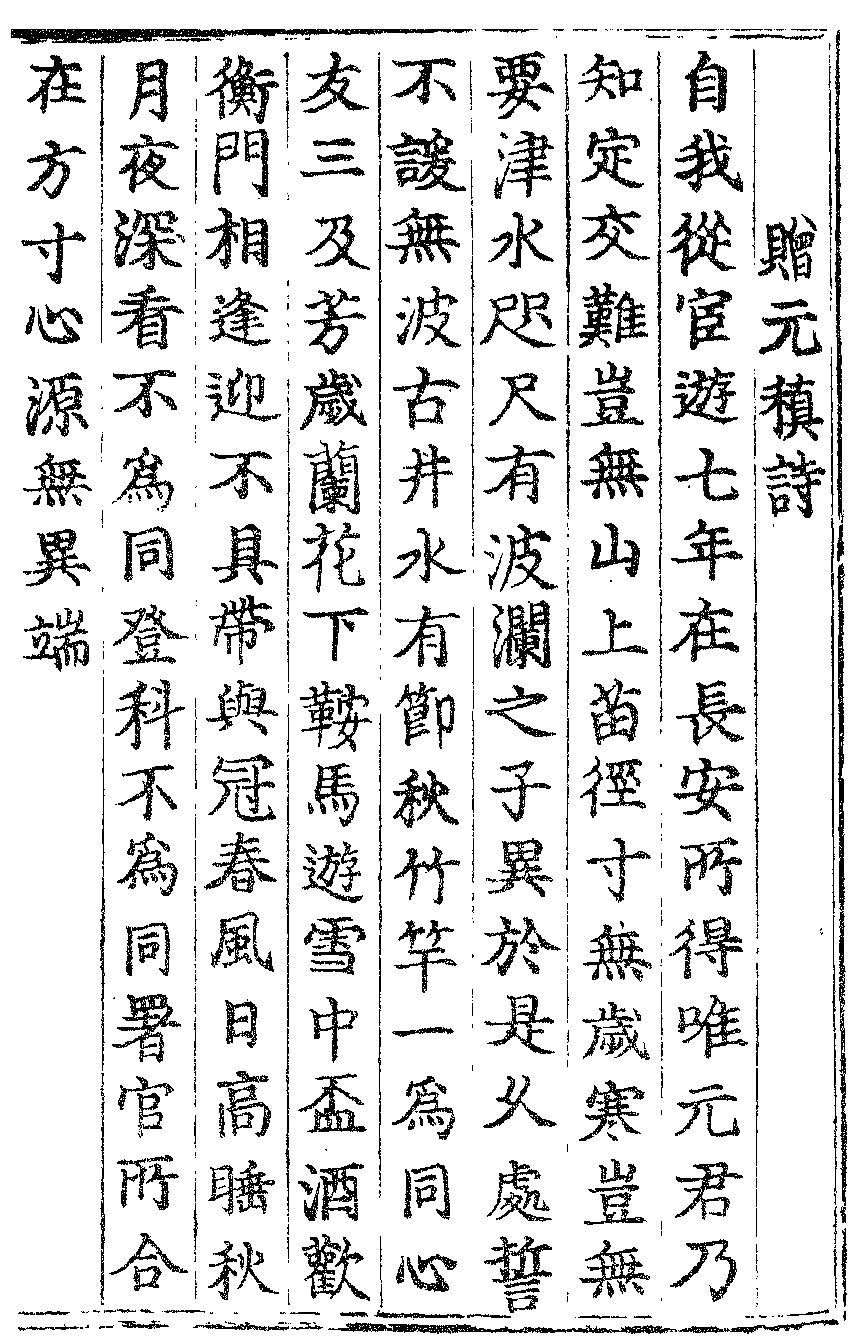 贈元稹詩
自我從宦遊七年在長安所得唯元君乃
知定交難豈無山上苗徑寸無歲寒豈無
要津水咫尺有波瀾之子異於是久處誓
不諼無波古井水有節秋竹竿一爲同心
友三及芳歲蘭花下鞍馬遊雪中盃酒歡
衡門相逢迎不具帶與冠春風日高睡秋
月夜深看不爲同登科不爲同署官所合
在方寸心源無異端